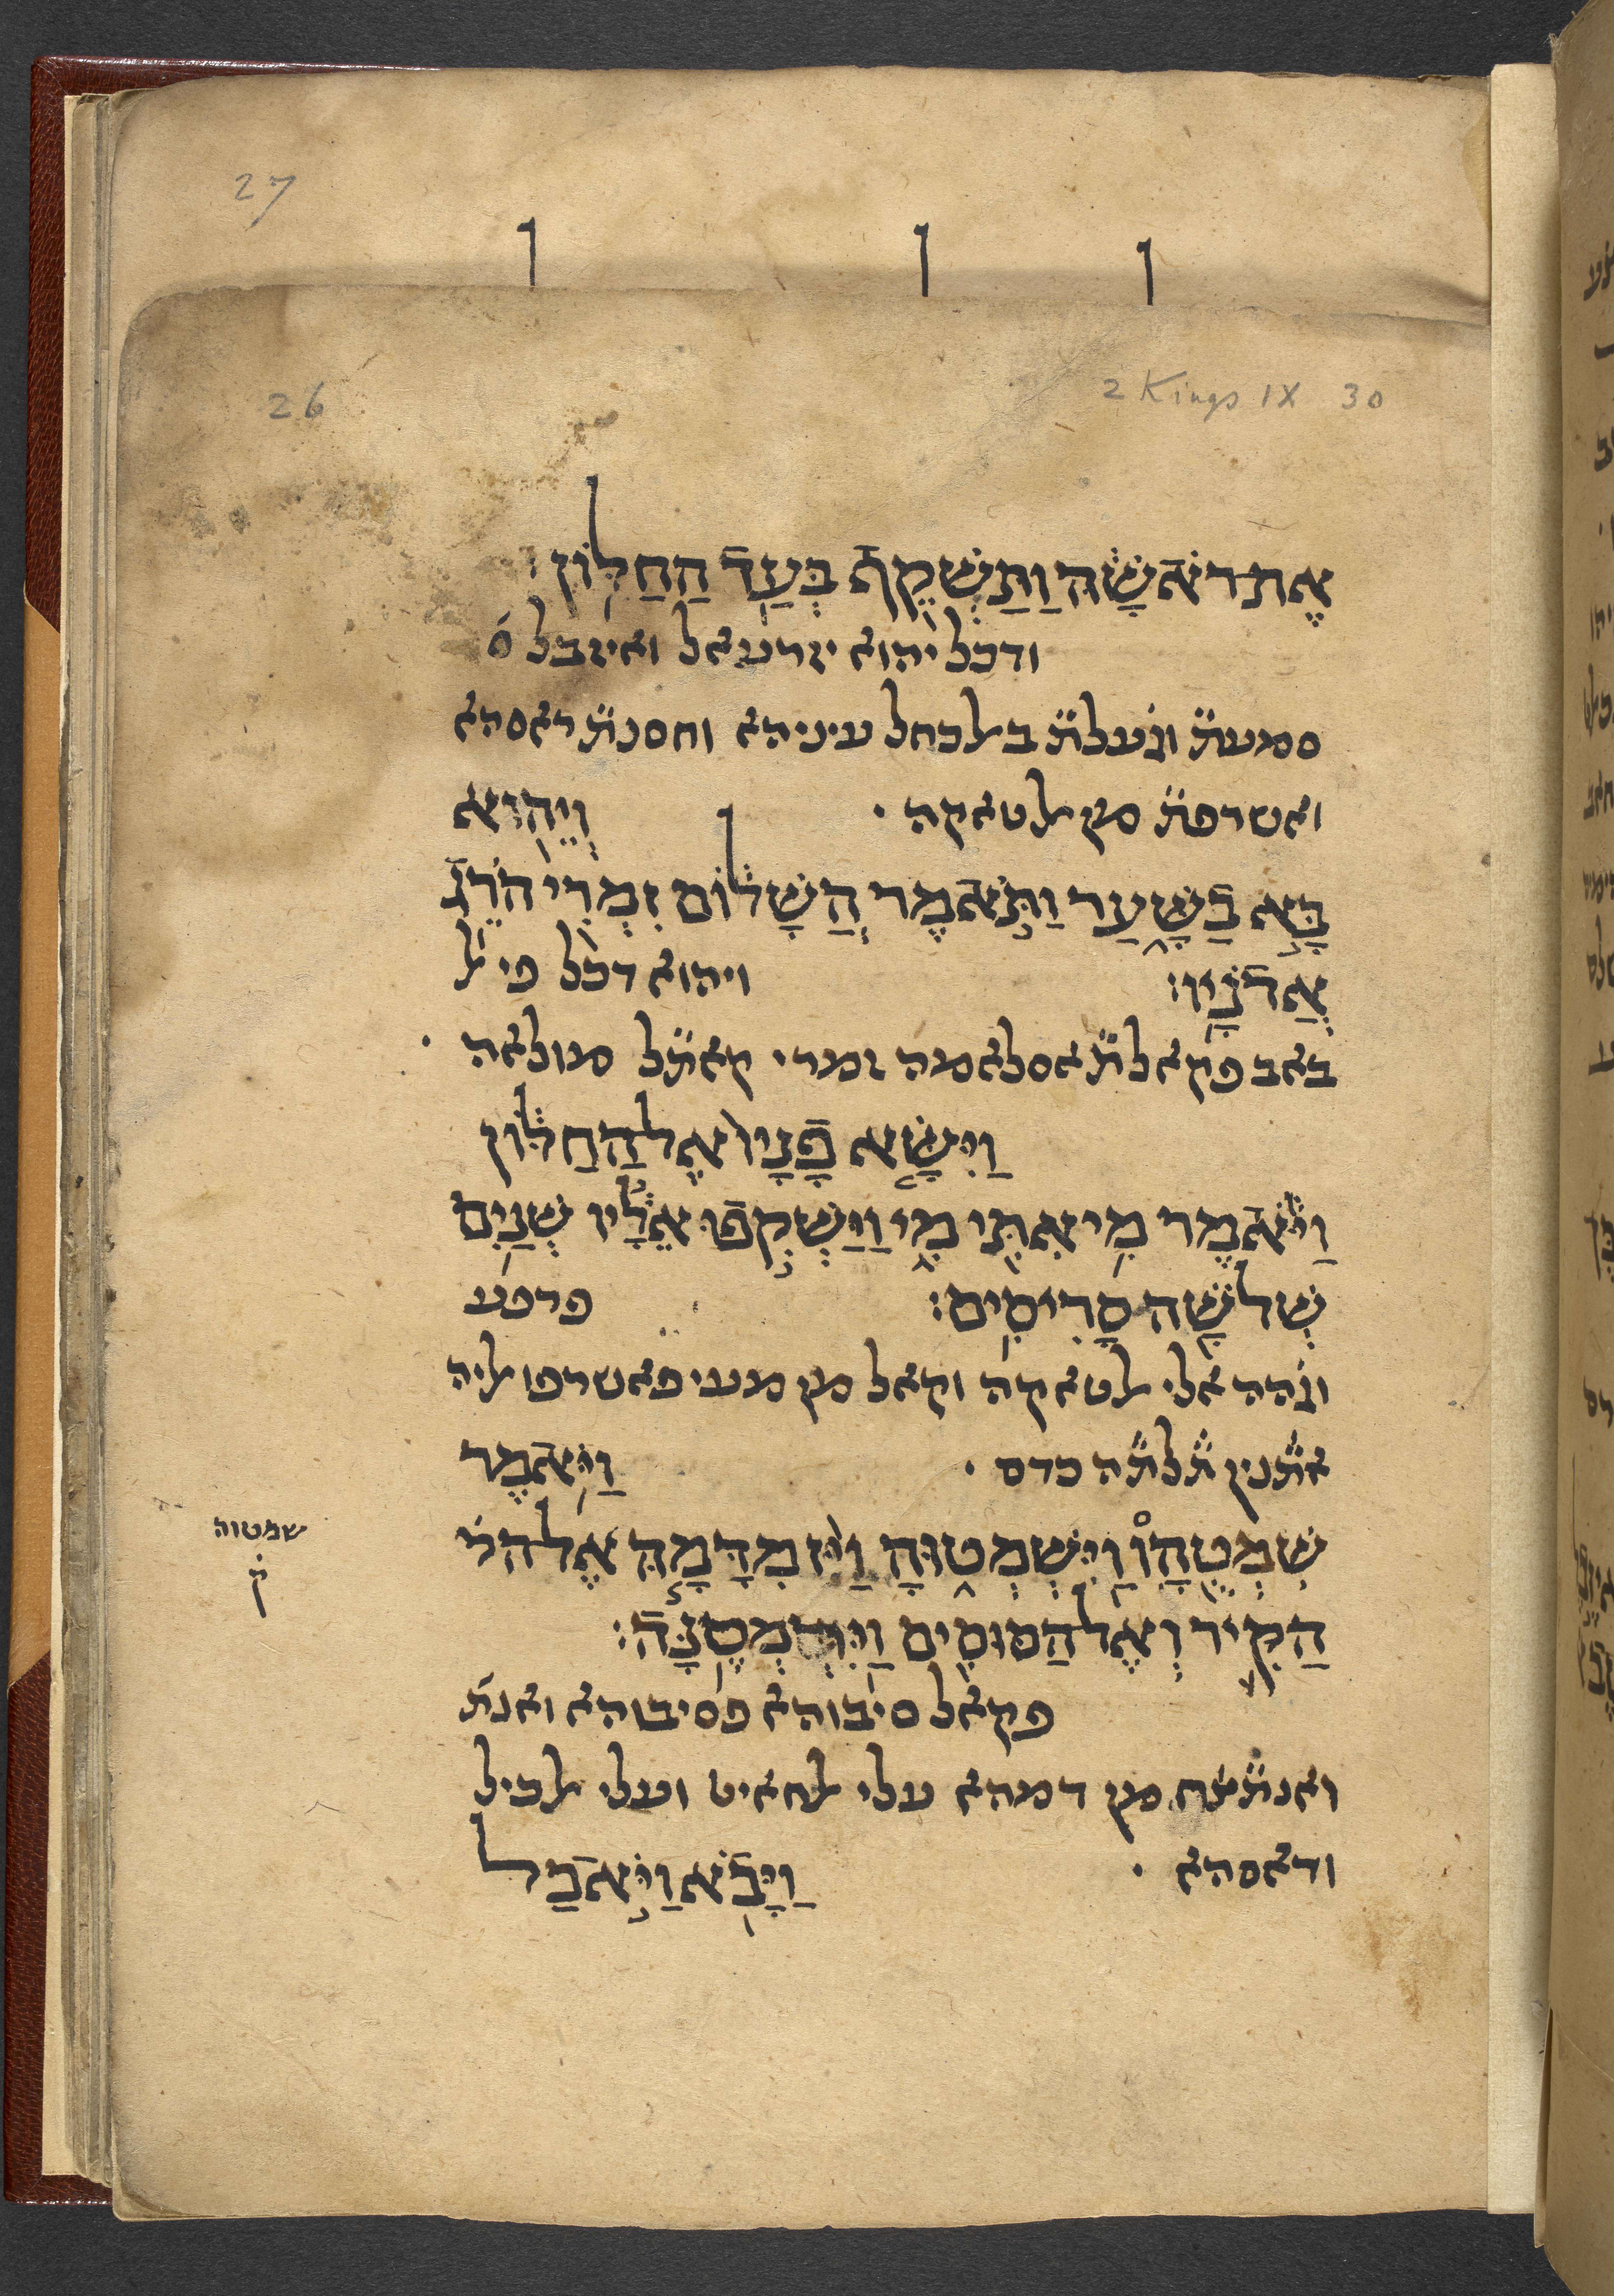 27
26
2 Kings IX 30
אֶת רֹאשָׁהּ וַתַּשְׁקֵף בְּעַד הַחַלּוֹן׃
ודכ֗ל יהוא יזרעאל ואיזבל ס
סמעת̈ ונ֗עלת̈ בלכחל עיניהא וחסנת̈ ראסהא
ואשרפת̈ מן לטאקה ·
וְיֵהוּא
בָּא בַשָּׁעַר וַתֹּאמֶר הֲשָׁלוֹם זִמְרִי הֹרֵג
אֲדֹנָיו׃
ויהוא דכ֗ל פי ל
באב פקאלת̈ אסלאמה זמרי קאת̈ל מולאה ·
וַיִּשָּׂא פָנָיו אֶל הַחַלּוֹן
וַיֹּאמֶר מִי אִתִּי מִי וַיַּשְׁקִפוּ אֵלָיו שְׁנַיִם
שְׁלשָׁה סָרִיסִים׃
פרפע
וג֗הה אלי לטאקה וקאל מן מעי פאשרפו ליה
את̈נין ת̈לת̈ה כ֗דם ·
וַיֹּאמֶר
שִׁמְטֻהָוּ וַיִּשְׁמְטוּהָ וַיִּז מִדָּמָהּ אֶל
הַקִּיר וְאֶל הַסּוּסִים וַיִּרְמְסֶנָּה׃
שמטוה
ק̇
פקאל סיבוהא פסיבוהא ואנת̈
ואנת̈צ̇ח מן דמהא עלי לחאיט ועלי לכ֗יל
ודאסהא ·
וַיָּבֹא וַיֹּאכַל